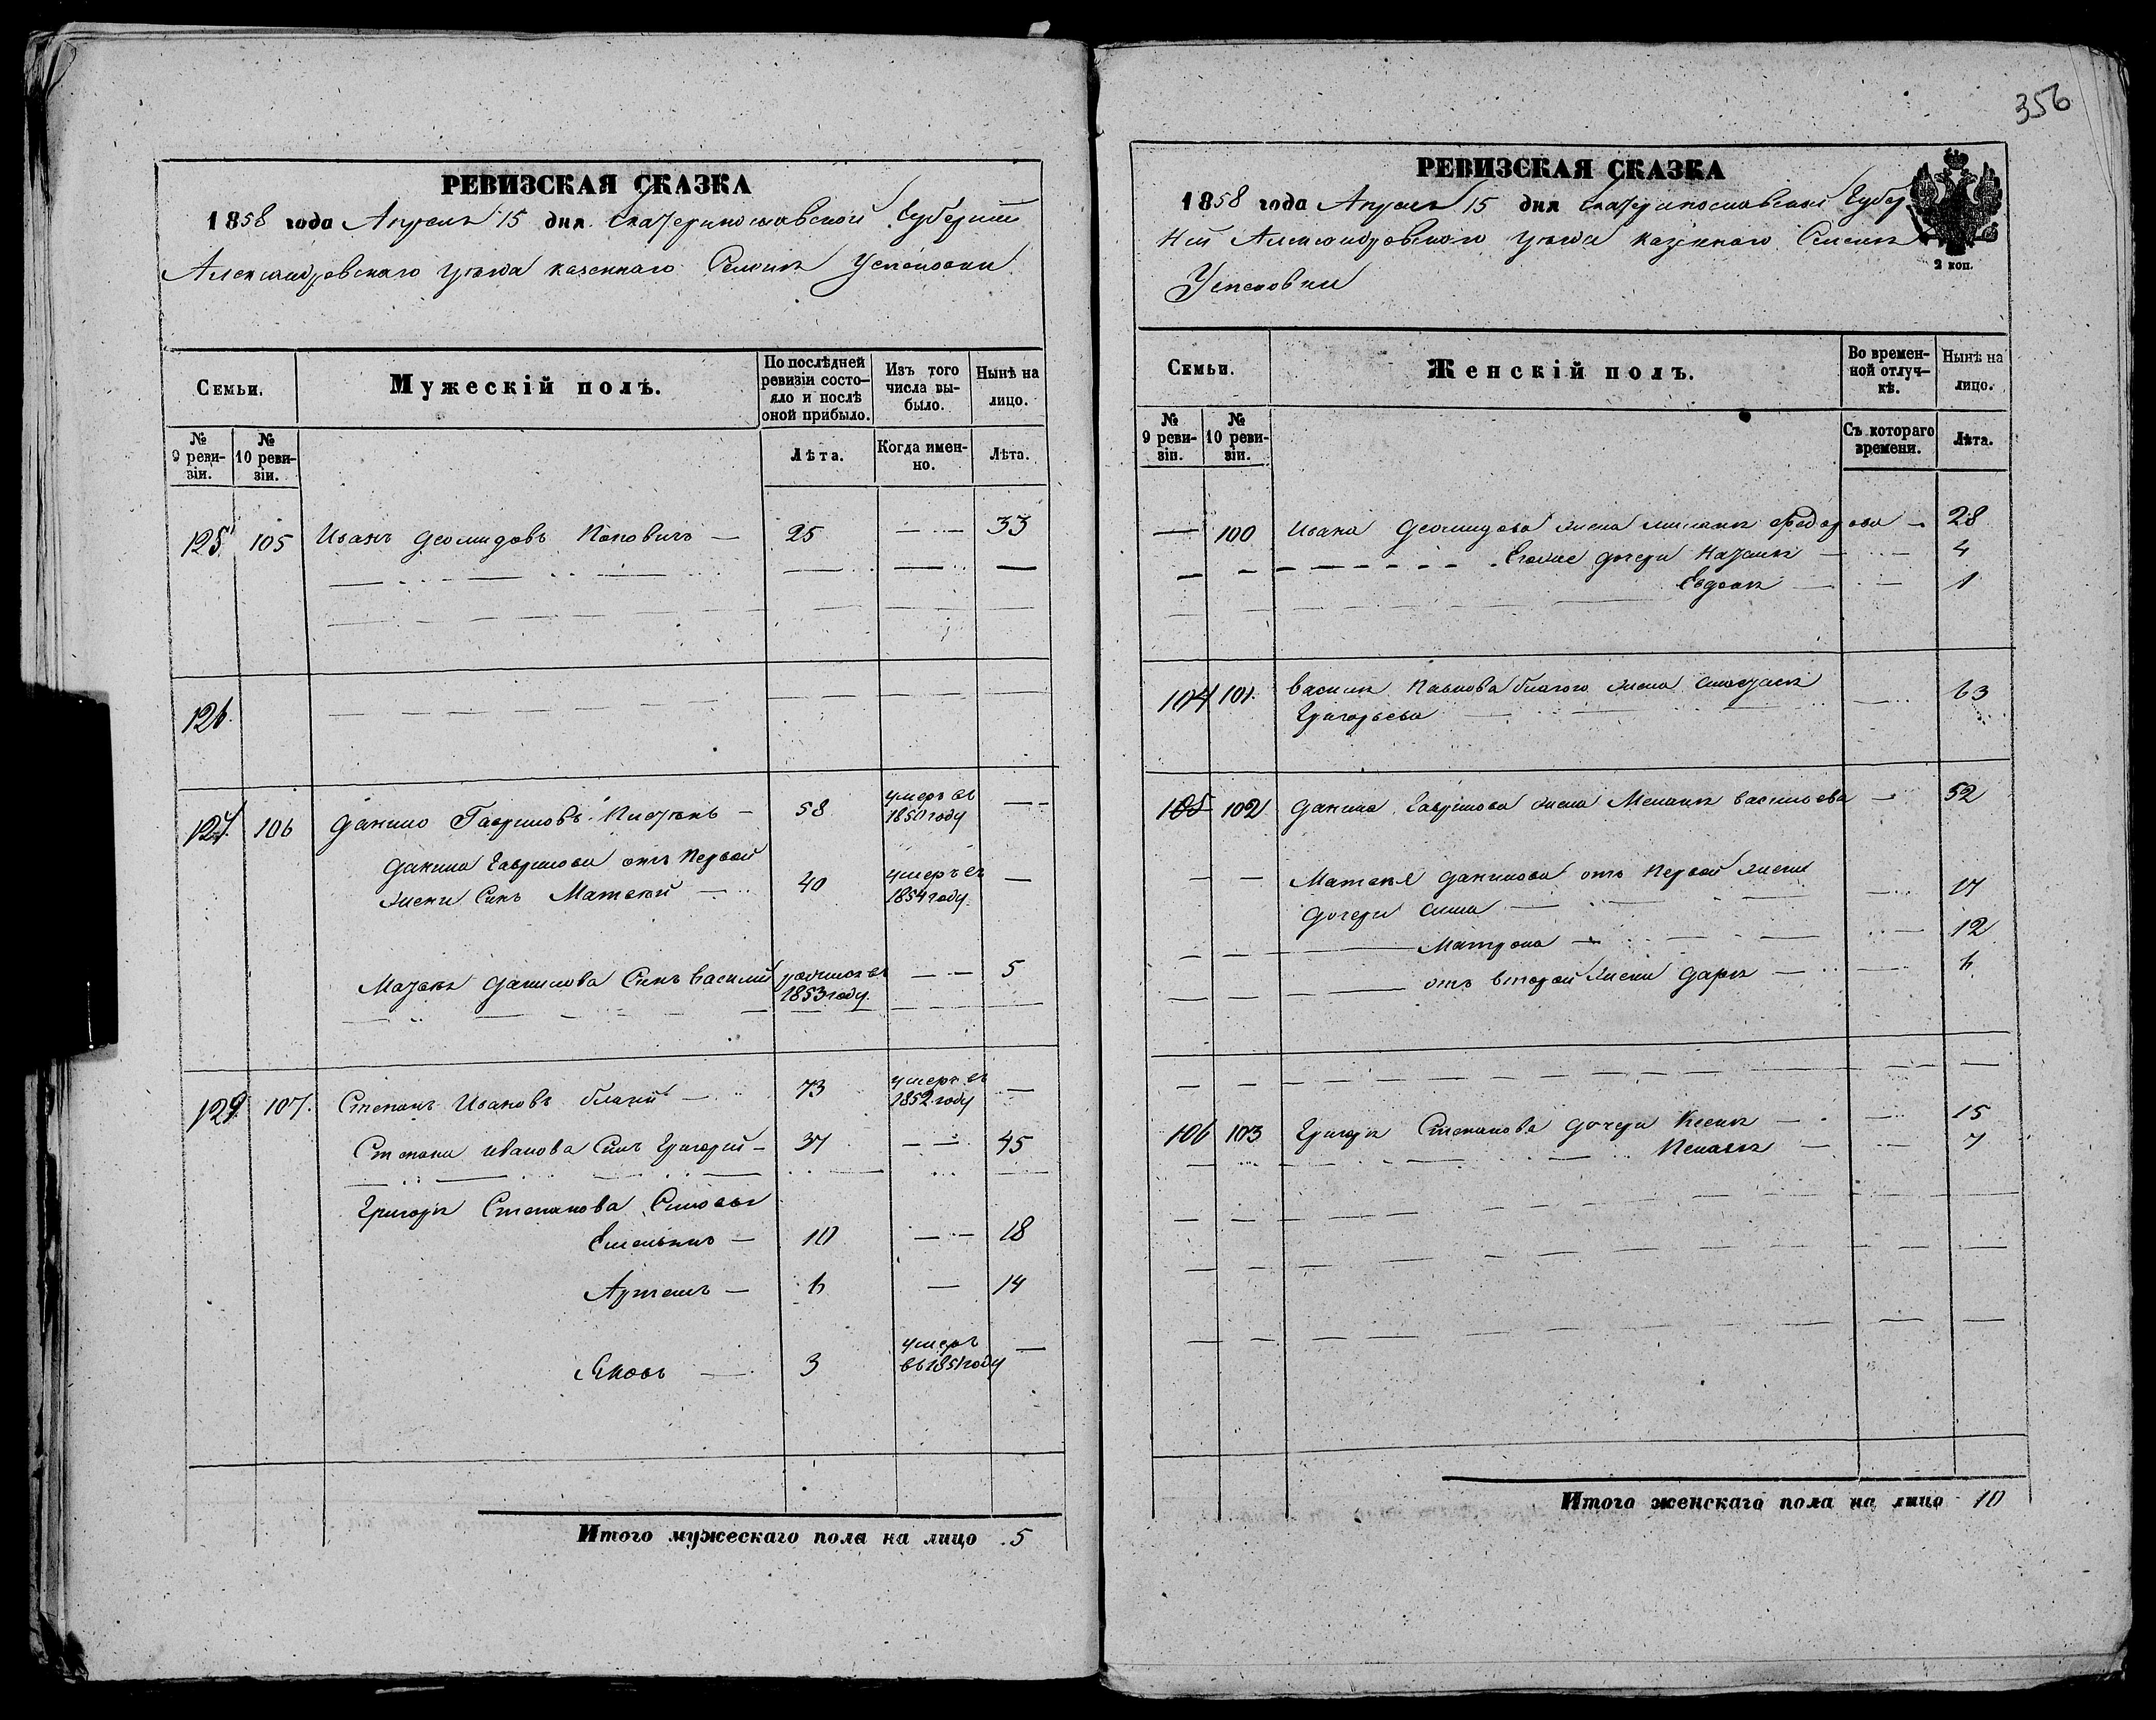 356
РЕВИЗСКАЯ СКАЗКА
1858 года Апреля 15 дня Екатеринославской Губернии
Александровского уезда казенного Селенія Успеновки
Семьи.
Мужескій полъ.
По послѣдней ревизіи состо-
яло и послѣ
оной прибыло.
Изъ того
числа вы-
было.
Нынѣ на
лицо.
№
9 реви-
зіи.
№
10 реви-
зіи.
Лѣта.
Когда имен-
но.
Лѣта.
125 105 Иванъ Деомидовъ Поповичъ — 25 — 33
126.
127 106 Данило Гавриловъ — 58 умеръ въ 1850 году —
Данила Гаврилова отъ первой
жены Сынъ Матвѣй — 40 умеръ въ 1854 году —
Матвѣя Данилова Сынъ Василій 1853 году. — 5
129 107. Степанъ Ивановъ благій — 73 умеръ въ 1852 году —
Степана Иванова Сынъ Григорій — 37 — 45
Григорія Степанова Сыновья
Емельянъ — 10 — 18
Артемъ — 6 — 14
Яковъ — 3 умеръ въ 1851 году —
Итого мужескаго пола на лицо 5
РЕВИЗСКАЯ СКАЗКА
1858 года Апреля 15 дня Екатеринославской Губер
ніи Александровского уезда казенного Селенія
Успеновки
2 коп.
Семьи.
Женскій полъ.
Во времен-
ной отлуч-
кѣ.
Нынѣ на
лицо.
№
9 реви-
зіи.
№
10 реви-
зіи.
Съ котораго
времени.
Лѣта.
— 100 Ивана Деомидова жена Федорова — 28
Егоже дочери Наталія — 4
Евдокія — 1
104 101. Василія Павлова благого жена Анастасія
Григорьева — 63
105 102 Данила Гаврилова жена Меланія Васильева — 52
Матвѣя Данилова отъ первой жены
дочери Анна — 17
Матрона — 12
отъ второй жены Дарія — 6
106 103 Григорія Степанова дочери Ксенія — 15
Пелагія — 7
Итого женскаго пола на лицо 10